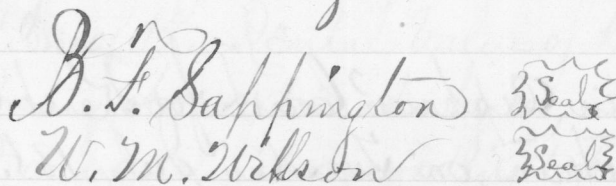 B. F. Sappington Seal
W. M. Willson Seal